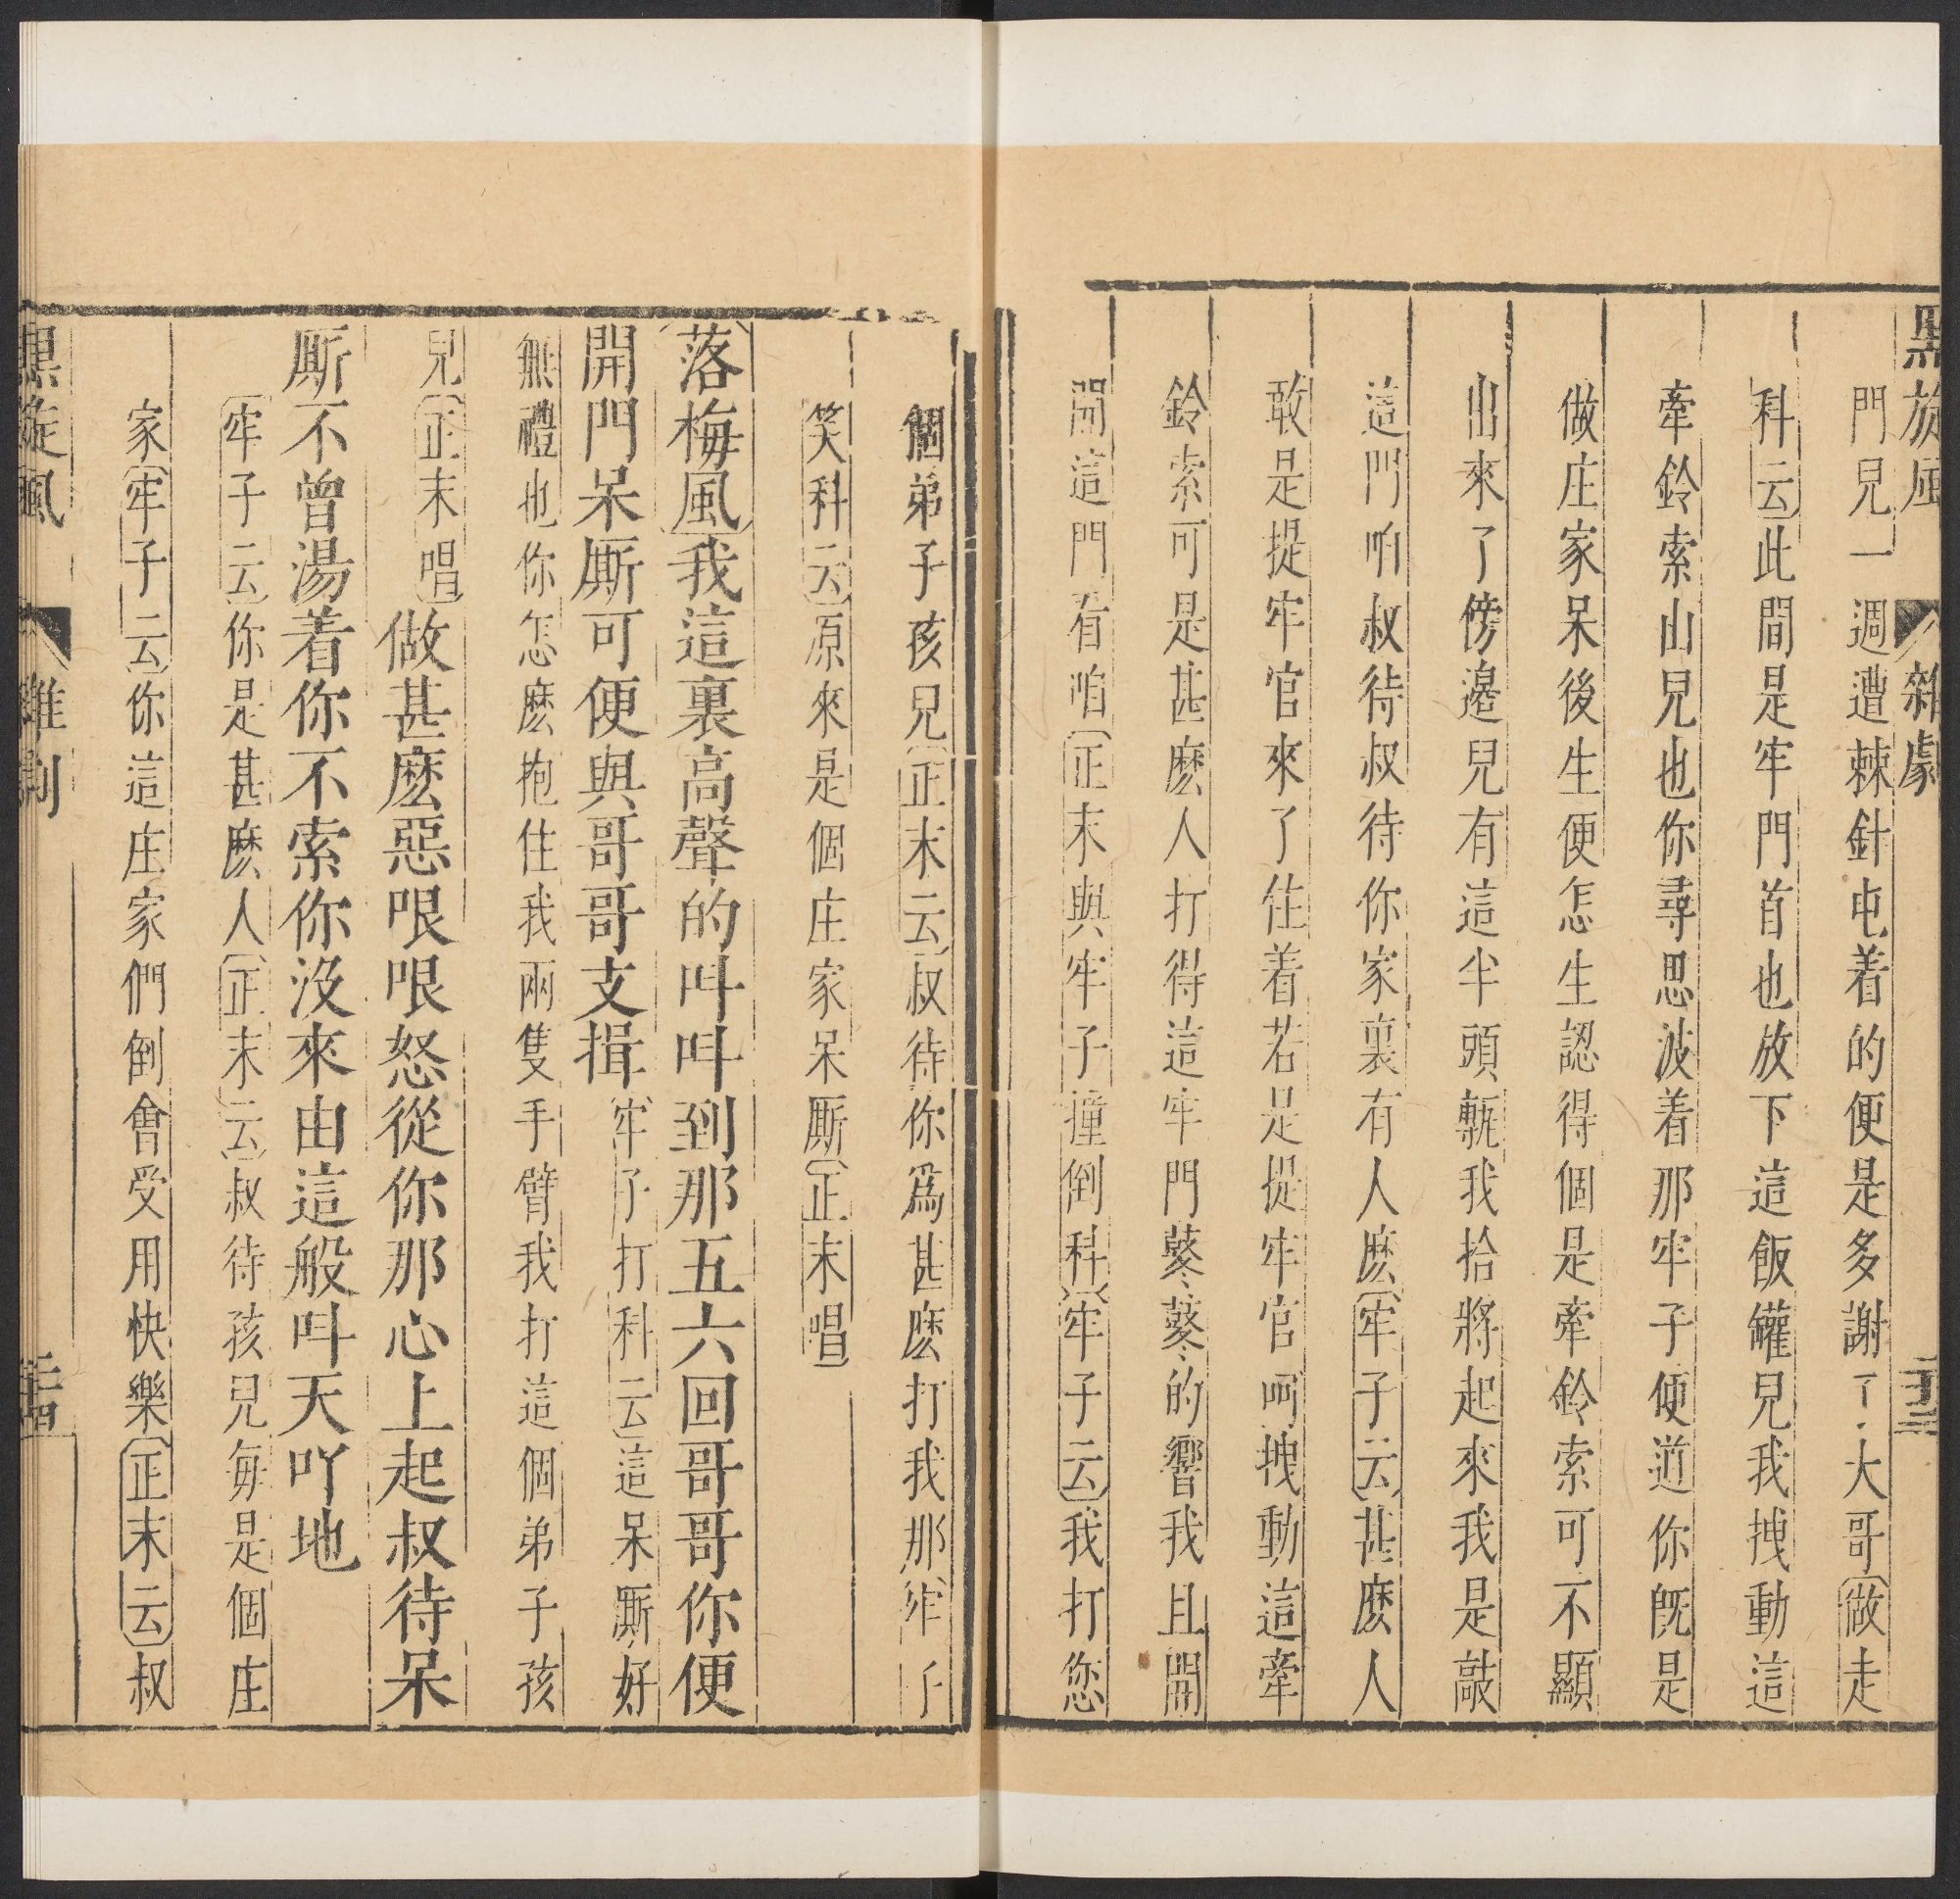 黑旋風 雜劇
門兒一週遭棘針屯着的便是多謝了大哥做走
科云此間是牢門首也放下這飯罐兒我拽動這
牽鈴索山兒也你尋思波着那牢子便道你旣是
做庄家呆後生便怎生認得個是牽鈴索可不顯
出來了傍邊兒有這半頭甎我拾將起來我是敲
這門咱叔待叔待你家裏有人麽牢子云甚麽人
敢是提牢官來了住着若是提牢官呵拽動這牽
鈴索可是甚麽人打得這牢門鼕鼕的響我且開
開這門看咱正末與牢子撞倒科牢子云我打您
個弟子孩兒正末云叔待你爲甚麽打我那牢子
笑科云原來是個庄家呆厮正末唱
落梅風我這裏高聲的叫叫到那五六回哥哥你便
開門呆厮可便與哥哥支揖牢子打科云這呆厮好
無禮也你怎麽抱住我兩隻手臂我打這個弟子孩
兒正末唱做甚麽惡哏哏怒從你那心上起叔待呆
厮不曾湯着你不索你沒來由這般叫天吖地
牢子云你是甚麽人正末云叔待孩兒每是個庄
家牢子云你這庄家們倒會受用快樂正末云叔
黑旋風 雜劇